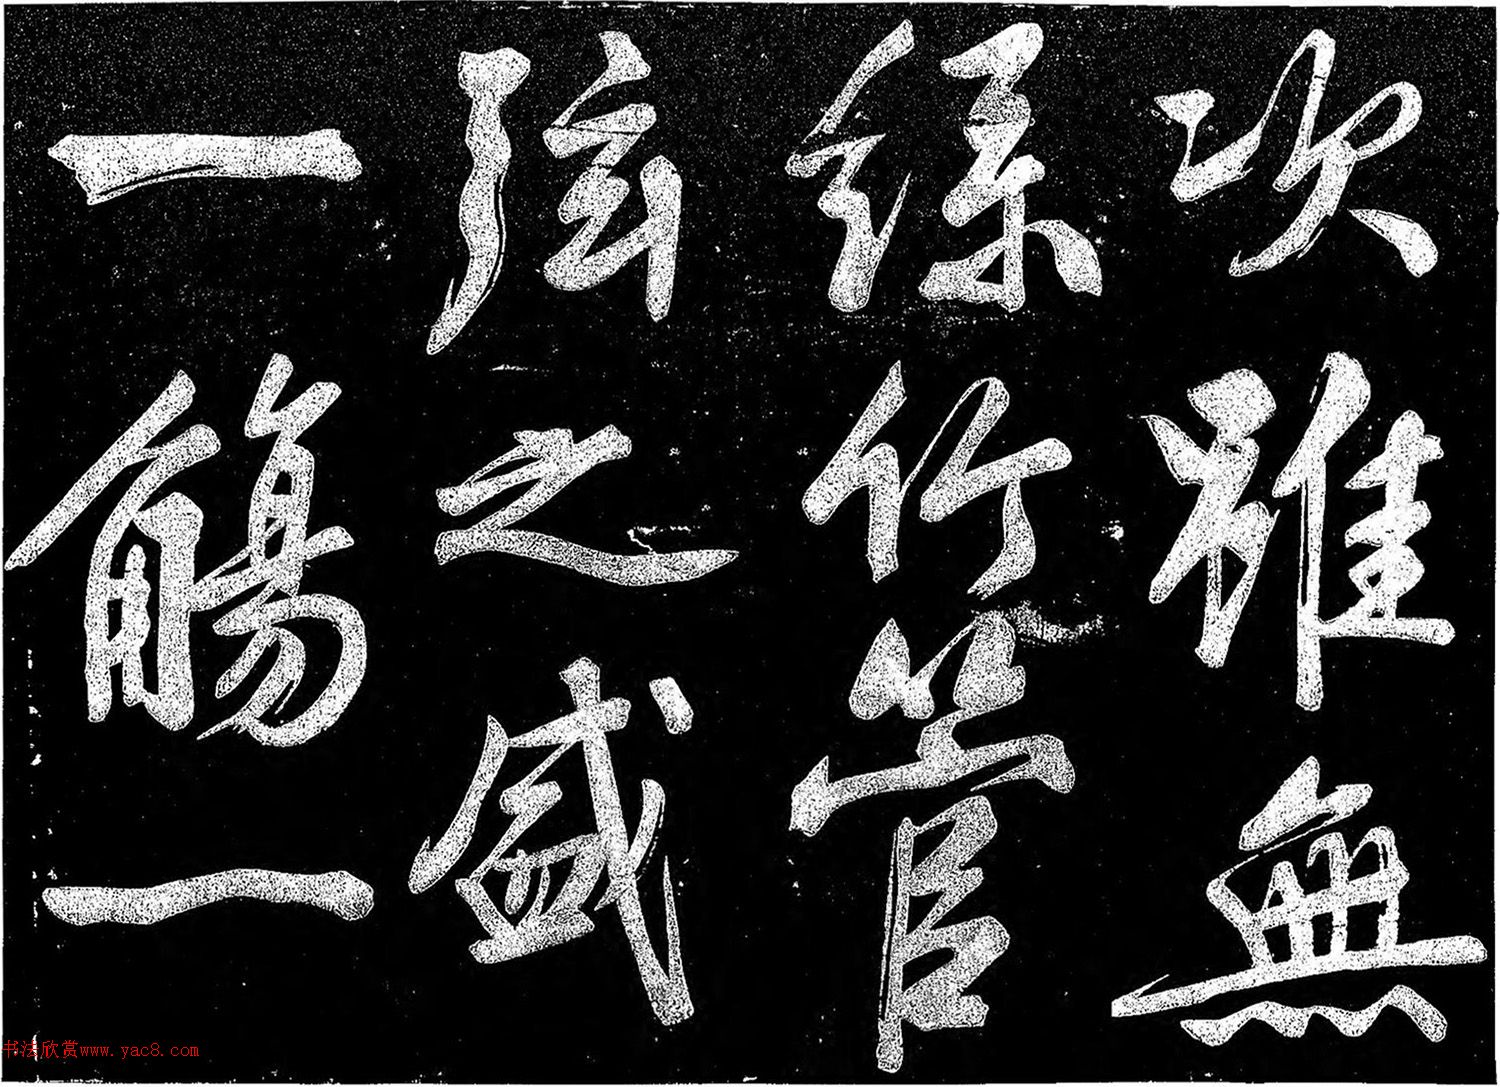 次雖無
絲竹管
弦之盛
一觴一
书法欣赏www.yac8.com